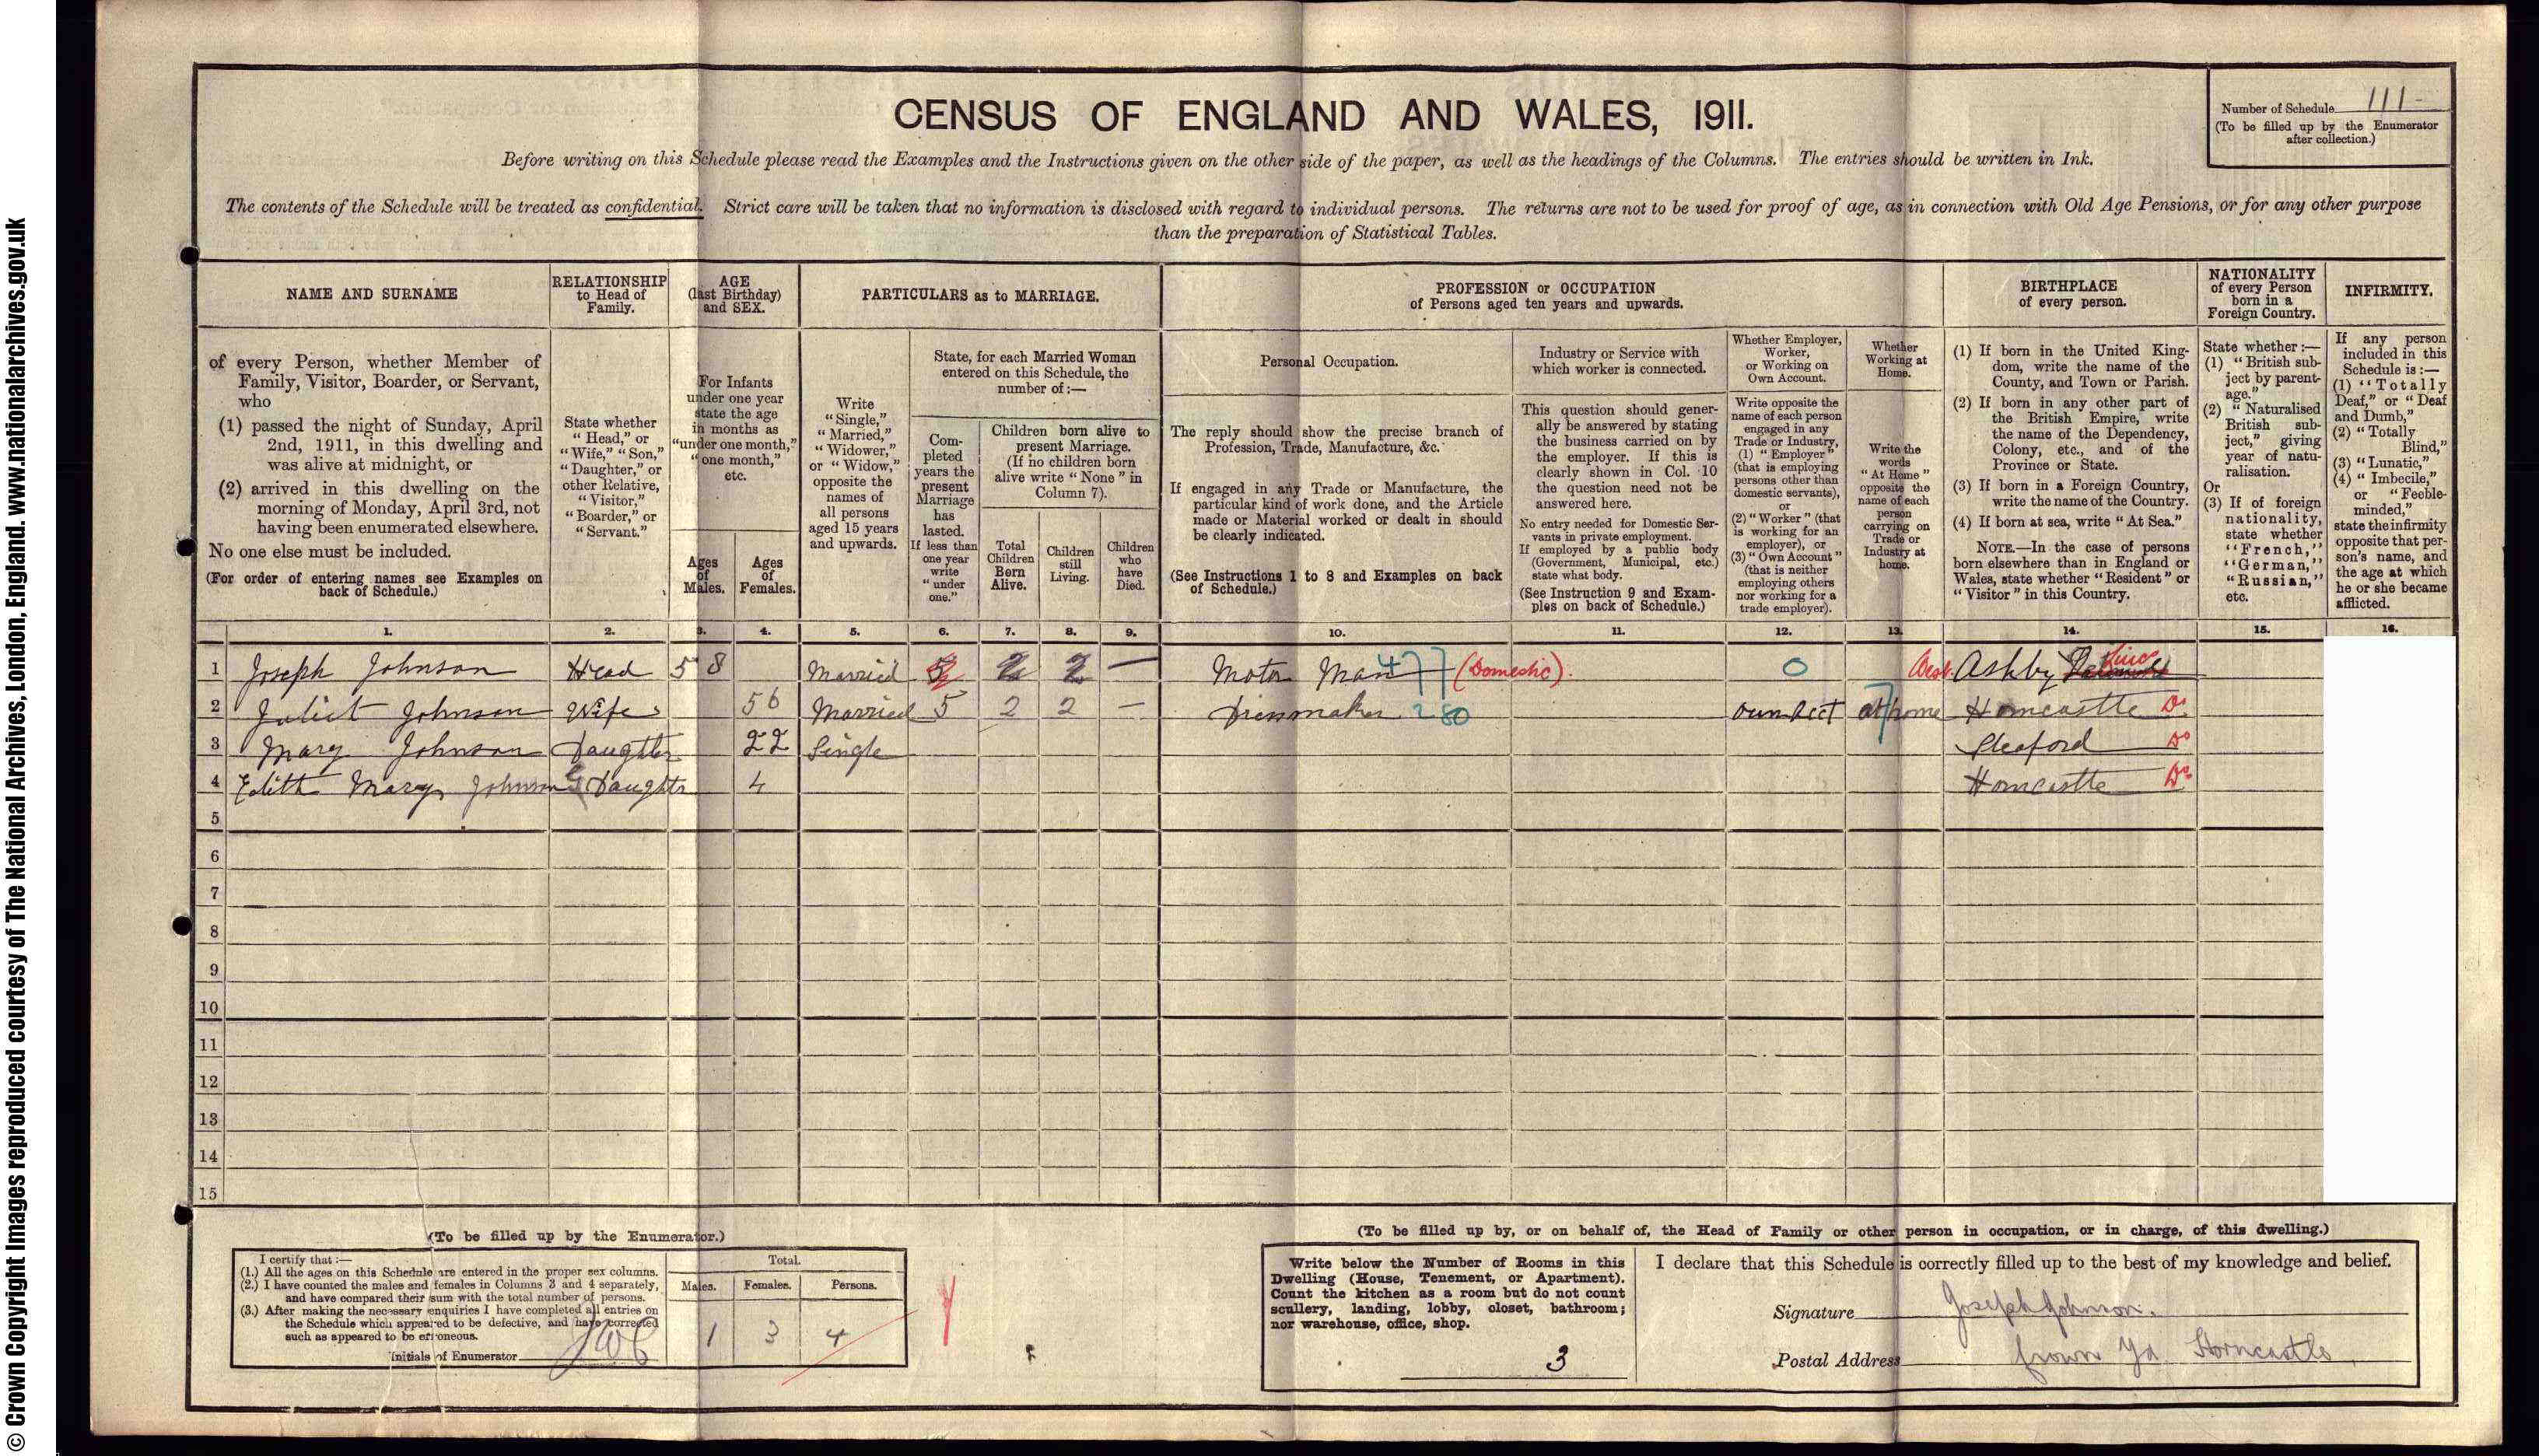 © Crown Copyright Images reproduced courtesy of The National Archives, London, England. www.nationalarchives.gov.uk
CENSUS OF ENGLAND AND WALES, 1911.
Number of Schedule 111
(To be filled up by the Enumerator
after collection.)
Before writing on this Schedule please read the Examples and the Instructions given on the other side of the paper, as well as the headings of the Columns. The entries should be written in Ink.
The contents of the Schedule will be treated as confidential. Strict care will be taken that no information is disclosed with regard to individual persons. The returns are not to be used for proof of age, as in connection with Old Age Pensions, or for any other purpose
than the preparation of Statistical Tables.
NAME AND SURNAME
of every Person, whether Member of
Family, Visitor, Boarder, or Servant,
who
(1) passed the night of Sunday, April
2nd, 1911, in this dwelling and
was alive at midnight, or
(2) arrived in this dwelling on the
morning of Monday, April 3rd, not
having been enumerated elsewhere.
No one else must be included.
(For order of entering names see Examples on
back of Schedule.)
RELATIONSHIP
to Head of
Family.
State whether
"Head," or
"Wife," "Son,"
"Daughter," or
other Relative,
"Visitor,"
"Boarder," or
"Servant."
AGE
(last Birthday)
and SEX.
For Infants
under one year
state the age
in months as
"under one month,"
"one month,"
etc.
Ages
of
Males.
Ages
of
Females.
PARTICULARS as to MARRIAGE.
Write
"Single,"
"Married,"
"Widower,"
or "Widow,"
opposite the
names of
all persons
aged 15 years
and upwards.
State, for each Married Woman
entered on this Schedule, the
number of:—
Com-
pleted
years the
present
Marriage
has
lasted.
If less than
one year
write
"under
one."
Children born alive to
present Marriage.
(If no children born
alive write "None" in
Column 7).
Total
Children
Born
Alive.
Children
still
Living.
Children
who
have
Died.
PROFESSION or OCCUPATION
of Persons aged ten years and upwards.
Personal Occupation.
The reply should show the precise branch of
Profession, Trade, Manufacture, &c.
If engaged in any Trade or Manufacture, the
particular kind of work done, and the Article
made or Material worked or dealt in should
be clearly indicated.
(See Instructions 1 to 8 and Examples on back
of Schedule.)
Industry or Service with
which worker is connected.
This question should gener-
ally be answered by stating
the business carried on by
the employer. If this is
clearly shown in Col. 10
the question need not be
answered here.
No entry needed for Domestic Ser-
vants in private employment.
If employed by a public body
(Government, Municipal, etc.)
state what body.
(See Instruction 9 and Exam-
ples on back of Schedule.)
Whether Employer,
Worker,
or Working on
Own Account.
Write opposite the
name of each person
engaged in any
Trade or Industry,
(1) "Employer"
(that is employing
persons other than
domestic servants),
or
(2) "Worker" (that
is working for an
employer), or
(3) "Own Account"
(that is neither
employing others
nor working for a
trade employer).
Whether
Working at
Home.
Write the
words
"At Home"
opposite the
name of each
person
carrying on
Trade or
Industry at
home.
BIRTHPLACE
of every person.
(1) If born in the United King-
dom, write the name of the
County, and Town or Parish.
(2) If born in any other part of
the British Empire, write
the name of the Dependency,
Colony, etc., and of the
Province or State.
(3) If born in a Foreign Country,
write the name of the Country.
(4) If born at sea, write "At Sea."
NOTE.—In the case of persons
born elsewhere than in England or
Wales, state whether "Resident" or
"Visitor" in this Country.
NATIONALITY
of every Person
born in a
Foreign Country.
State whether:—
(1) "British sub-
ject by parent-
age."
(2) "Naturalised
British sub-
ject," giving
year of natu-
ralisation.
Or
(3) If of foreign
nationality,
state whether
"French,"
"German,"
"Russian,"
etc.
INFIRMITY.
If any person
included in this
Schedule is:—
(1) "Totally
Deaf," or "Deaf
and Dumb,"
(2) "Totally
Blind,"
(3) "Lunatic,"
(4) "Imbecile,"
or "Feeble-
minded,"
state the infirmity
opposite that per-
son's name, and
the age at which
he or she became
afflicted.
1. 2. 3. 4. 5. 6. 7. 8. 9. 10. 11. 12. 13. 14. 15. 16.
1 Joseph Johnson Head 58 Married 5 2 2 — Motor Man 477 (Domestic). 0 Ashby Lincs
2 Juliet Johnson Wife 56 Married 5 2 2 — Dressmaker 280 own acct at home Horncastle Do
3 Mary Johnson Daughter 22 Single Sleaford Do
4 Edith Mary Johnson G Daughter 4 Horncastle Do
5
6
7
8
9
10
11
12
13
14
15
(To be filled up by the Enumerator.)
I certify that:—
(1.) All the ages on this Schedule are entered in the proper sex columns.
(2.) I have counted the males and females in Columns 3 and 4 separately,
and have compared their sum with the total number of persons.
(3.) After making the necessary enquiries I have completed all entries on
the Schedule which appeared to be defective, and have corrected
such as appeared to be erroneous.
Initials of Enumerator
Total.
Males. Females. Persons.
1 3 4
(To be filled up by, or on behalf of, the Head of Family or other person in occupation, or in charge, of this dwelling.)
Write below the Number of Rooms in this
Dwelling (House, Tenement, or Apartment).
Count the kitchen as a room but do not count
scullery, landing, lobby, closet, bathroom;
nor warehouse, office, shop.
3
I declare that this Schedule is correctly filled up to the best of my knowledge and belief.
Signature Joseph Johnson.
Postal Address Crown Yd. Horncastle